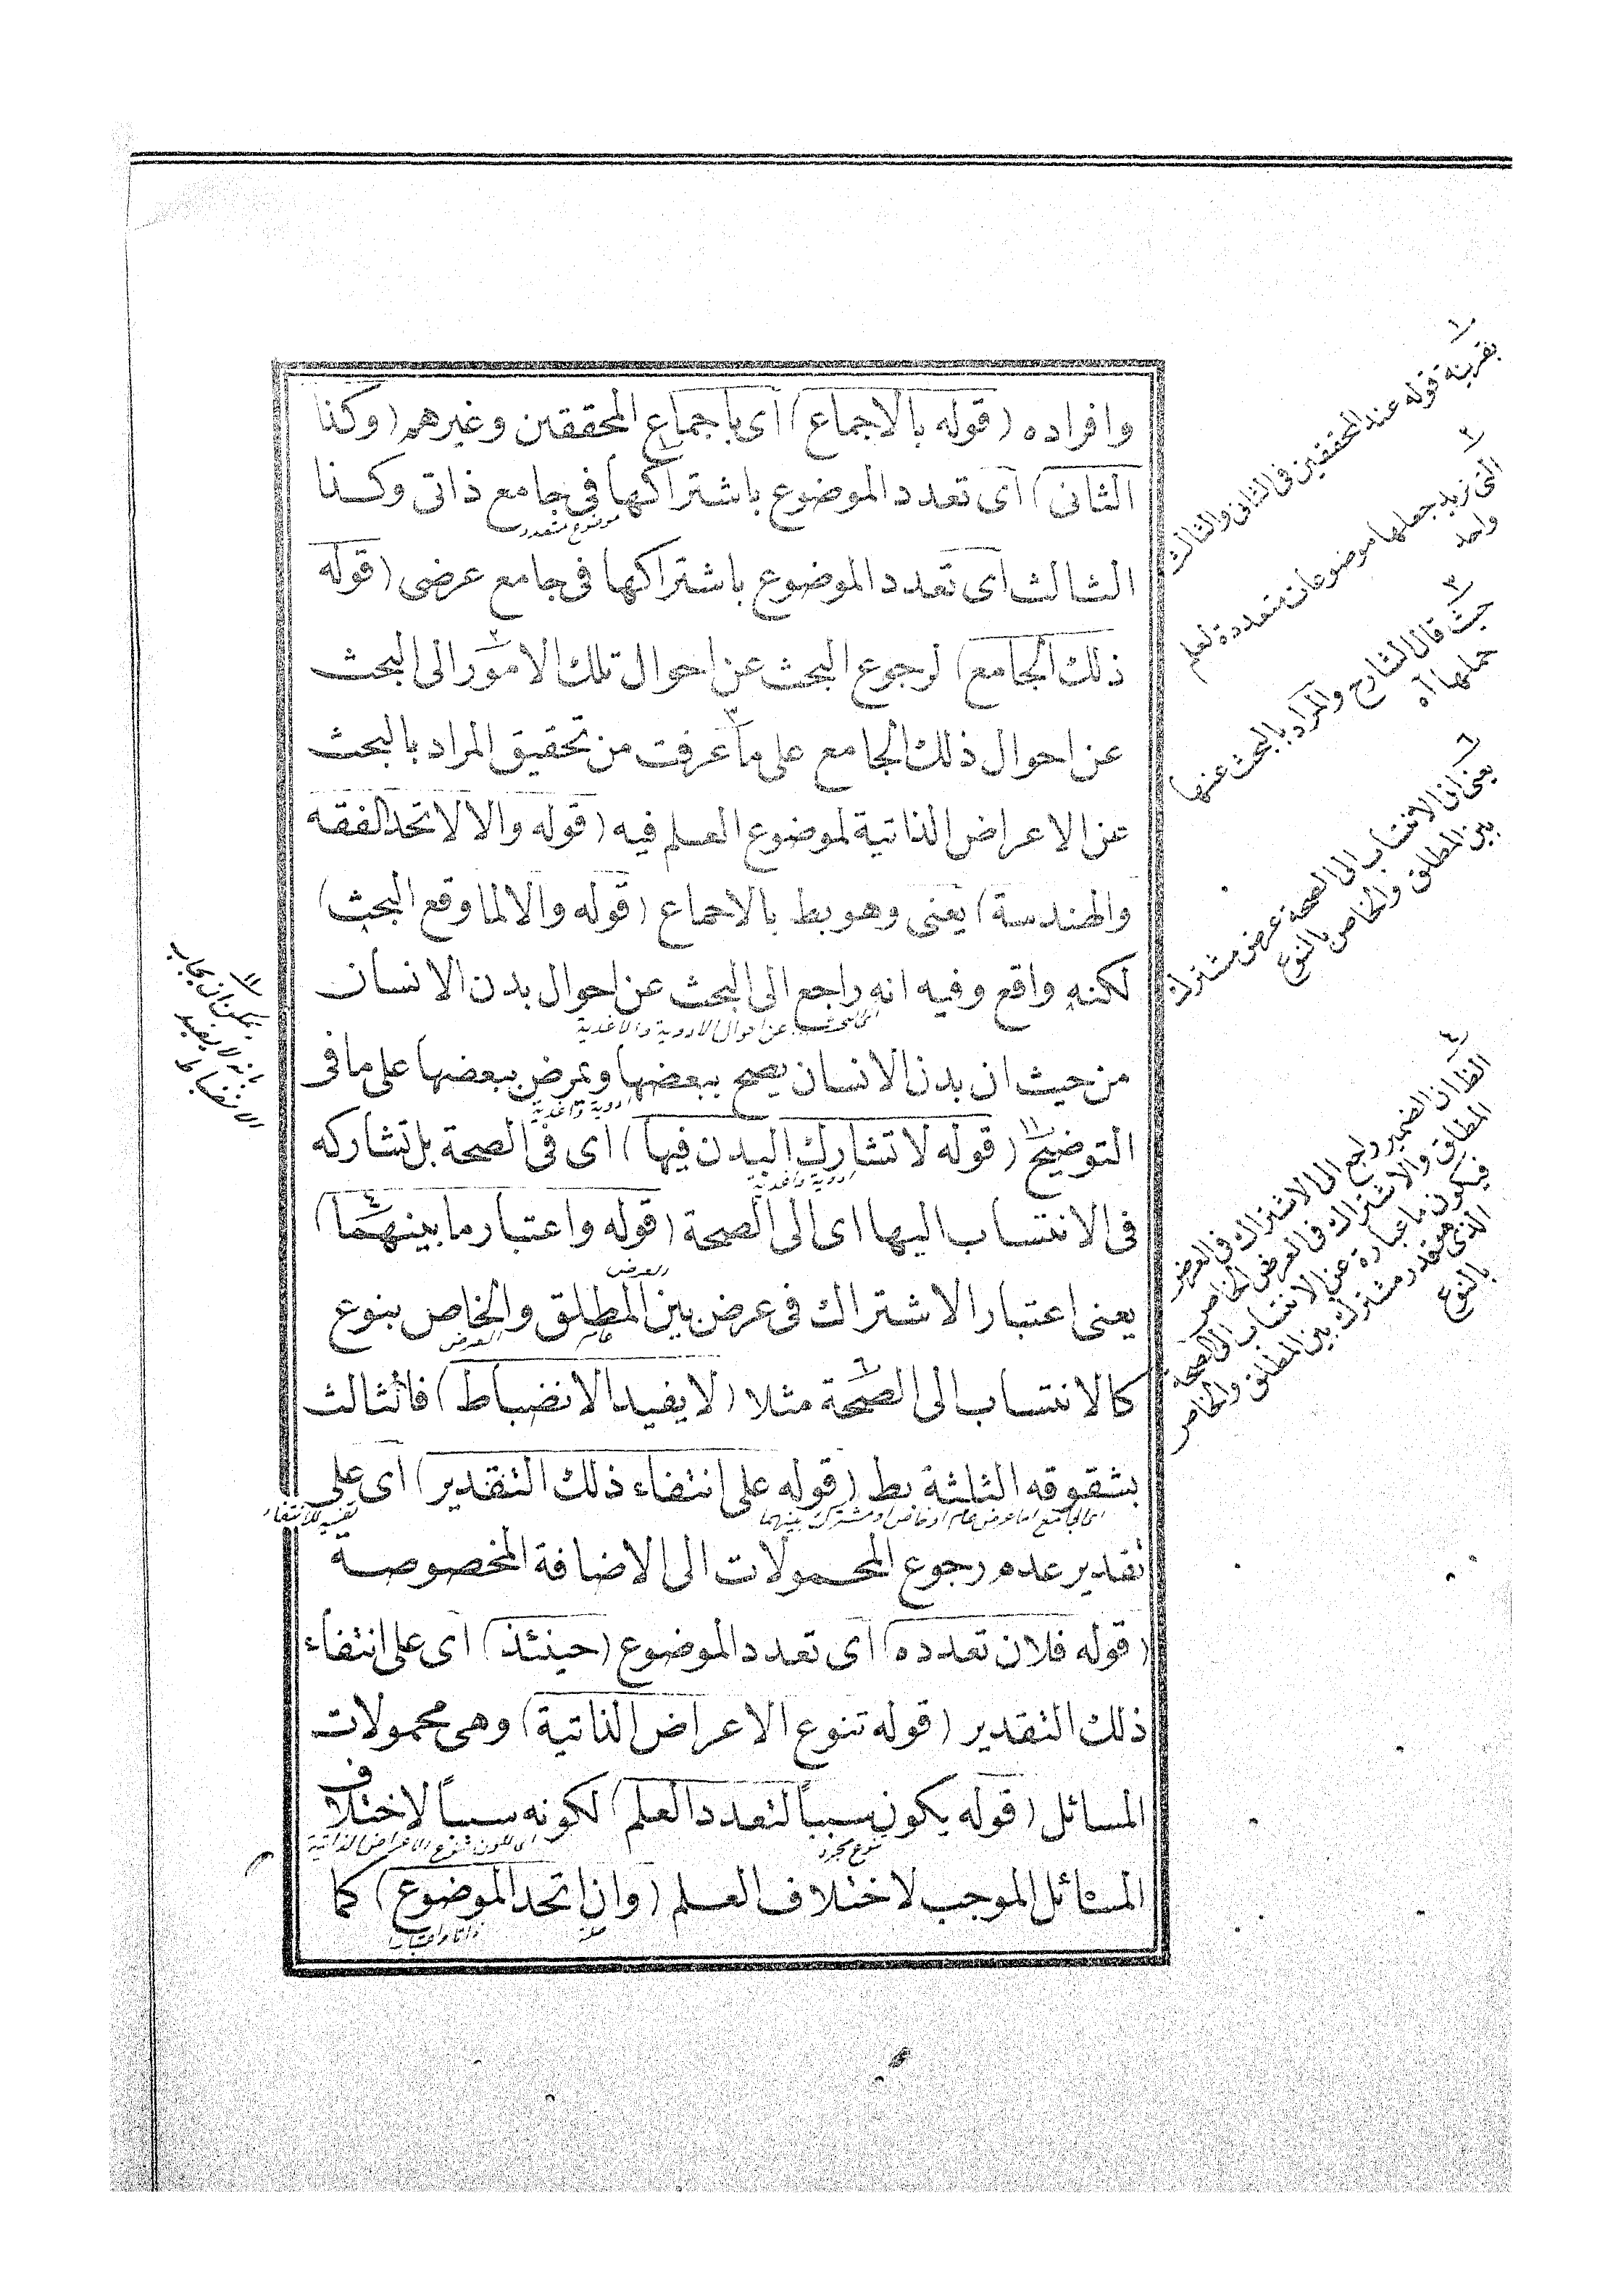 وافراده (قوله بالاجماع) اى باجماع المحققين وغيرهم (وكذا
الثانى) اى تعدد الموضوع باشتراكها فى جامع ذاتى وكذا
موضوع متعدد
الثالث اى تعدد الموضوع باشتراكها فى جامع عرضى (قوله
ذلك الجامع) لرجوع البحث عن احوال تلك الامور الى البحث
عن احوال ذلك الجامع على ما عرفت من تحقيق المراد بالبحث
عن الاعراض الذاتية لموضوع العلم فيه (قوله والا لاتحد الفقه
والهندسة) يعنى وهو بط بالاجماع (قوله والا لما وقع البحث)
لكنه واقع وفيه انه راجع الى البحث عن احوال بدن الانسان
اى البحث عن احوال الادوية والاغذية
من حيث ان بدن الانسان يصح ببعضها ويمرض ببعضها على ما فى
ادوية واغذية
التوضيح (قوله لا تشارك البدن فيها) اى فى الصحة بل تشاركه
ادوية واغذية
فى الانتساب اليها اى الى الصحة (قوله واعتبار ما بينهما)
يعنى اعتبار الاشتراك فى عرض بين المطلق والخاص بنوع
العرض
العرض
كالانتساب الى الصحة مثلا (لا يفيد الانضباط) فالثالث
بشقوقه الثلثة بط (قوله على انتفاء ذلك التقدير) اى على
اى الجامع اما عرض عام او خاص او مشترك بينهما
تفسير للانتفاء
تقدير عدم رجوع المحمولات الى الاضافة المخصوصة
(قوله فلان تعدده) اى تعدد الموضوع (حينئذ) اى على انتفاء
ذلك التقدير (قوله تنوع الاعراض الذاتية) وهى محمولات
المسائل (قوله يكون سببا لتعدد العلم) لكونه سببا لاختلاف
اى لكون تنوع الاعراض الذاتية
تنوع مجرد
المسائل الموجب لاختلاف العلم (وان اتحد الموضوع) كما
صلة
ذاتا واعتبارا
١
بقرينة قوله عند المحققين فى الثانى والثالث
٢
التى نريد جعلها موضوعات متعددة لعلم
واحد
٣
حيث قال الشارح والمراد بالبحث عنها
حملها اه
٦
يعنى ان الانتساب الى الصحة عرض مشترك
بين المطلق والخاص بالنوع
٤
الظ ان الضمير راجع الى الاشتراك فى العرض
المطلق والاشتراك فى العرض الخاص
فيكون ما عبارة عن الانتساب الى الصحة
الذى هو قدر مشترك بين المطلق والخاص
بالنوع
١١
يمكن ان يجاب
بانه لا يفيد
الانضباط